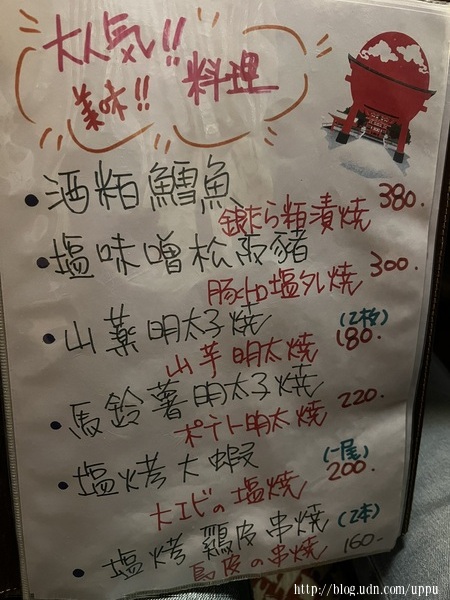 大人気!!
美味!! 料理
酒粕鱈魚 380.
銀だら粕漬焼
塩味噌松阪豬 300.
塩タレ焼
山薬明太子焼 (2枚) 180.
山芋明太焼
馬鈴薯明太子焼 220.
ポテト明太焼
塩烤大蝦 (一尾) 200.
大エビの塩焼
塩烤鶏皮串焼 (2本) 160-
鳥皮の串焼
http://blog.udn.com/uppu